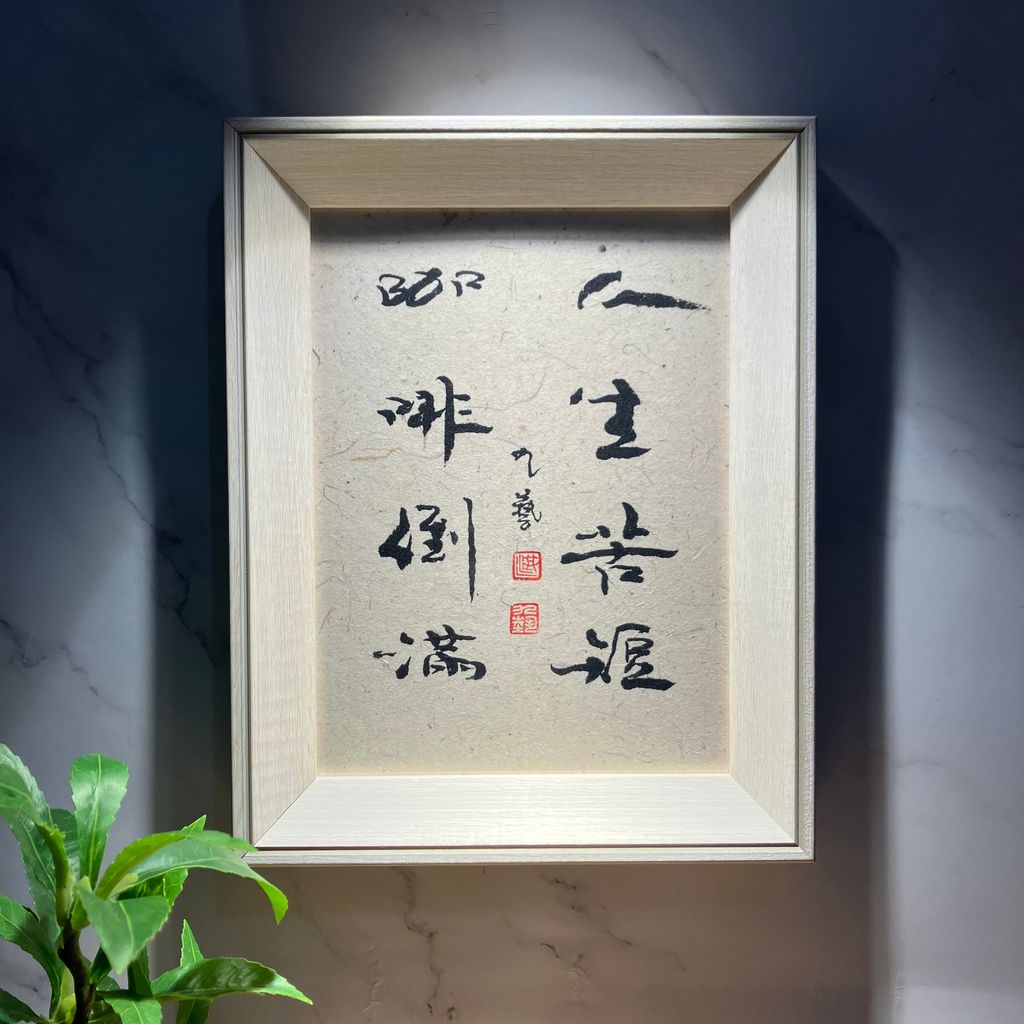 人生苦短
咖啡倒滿
九藝